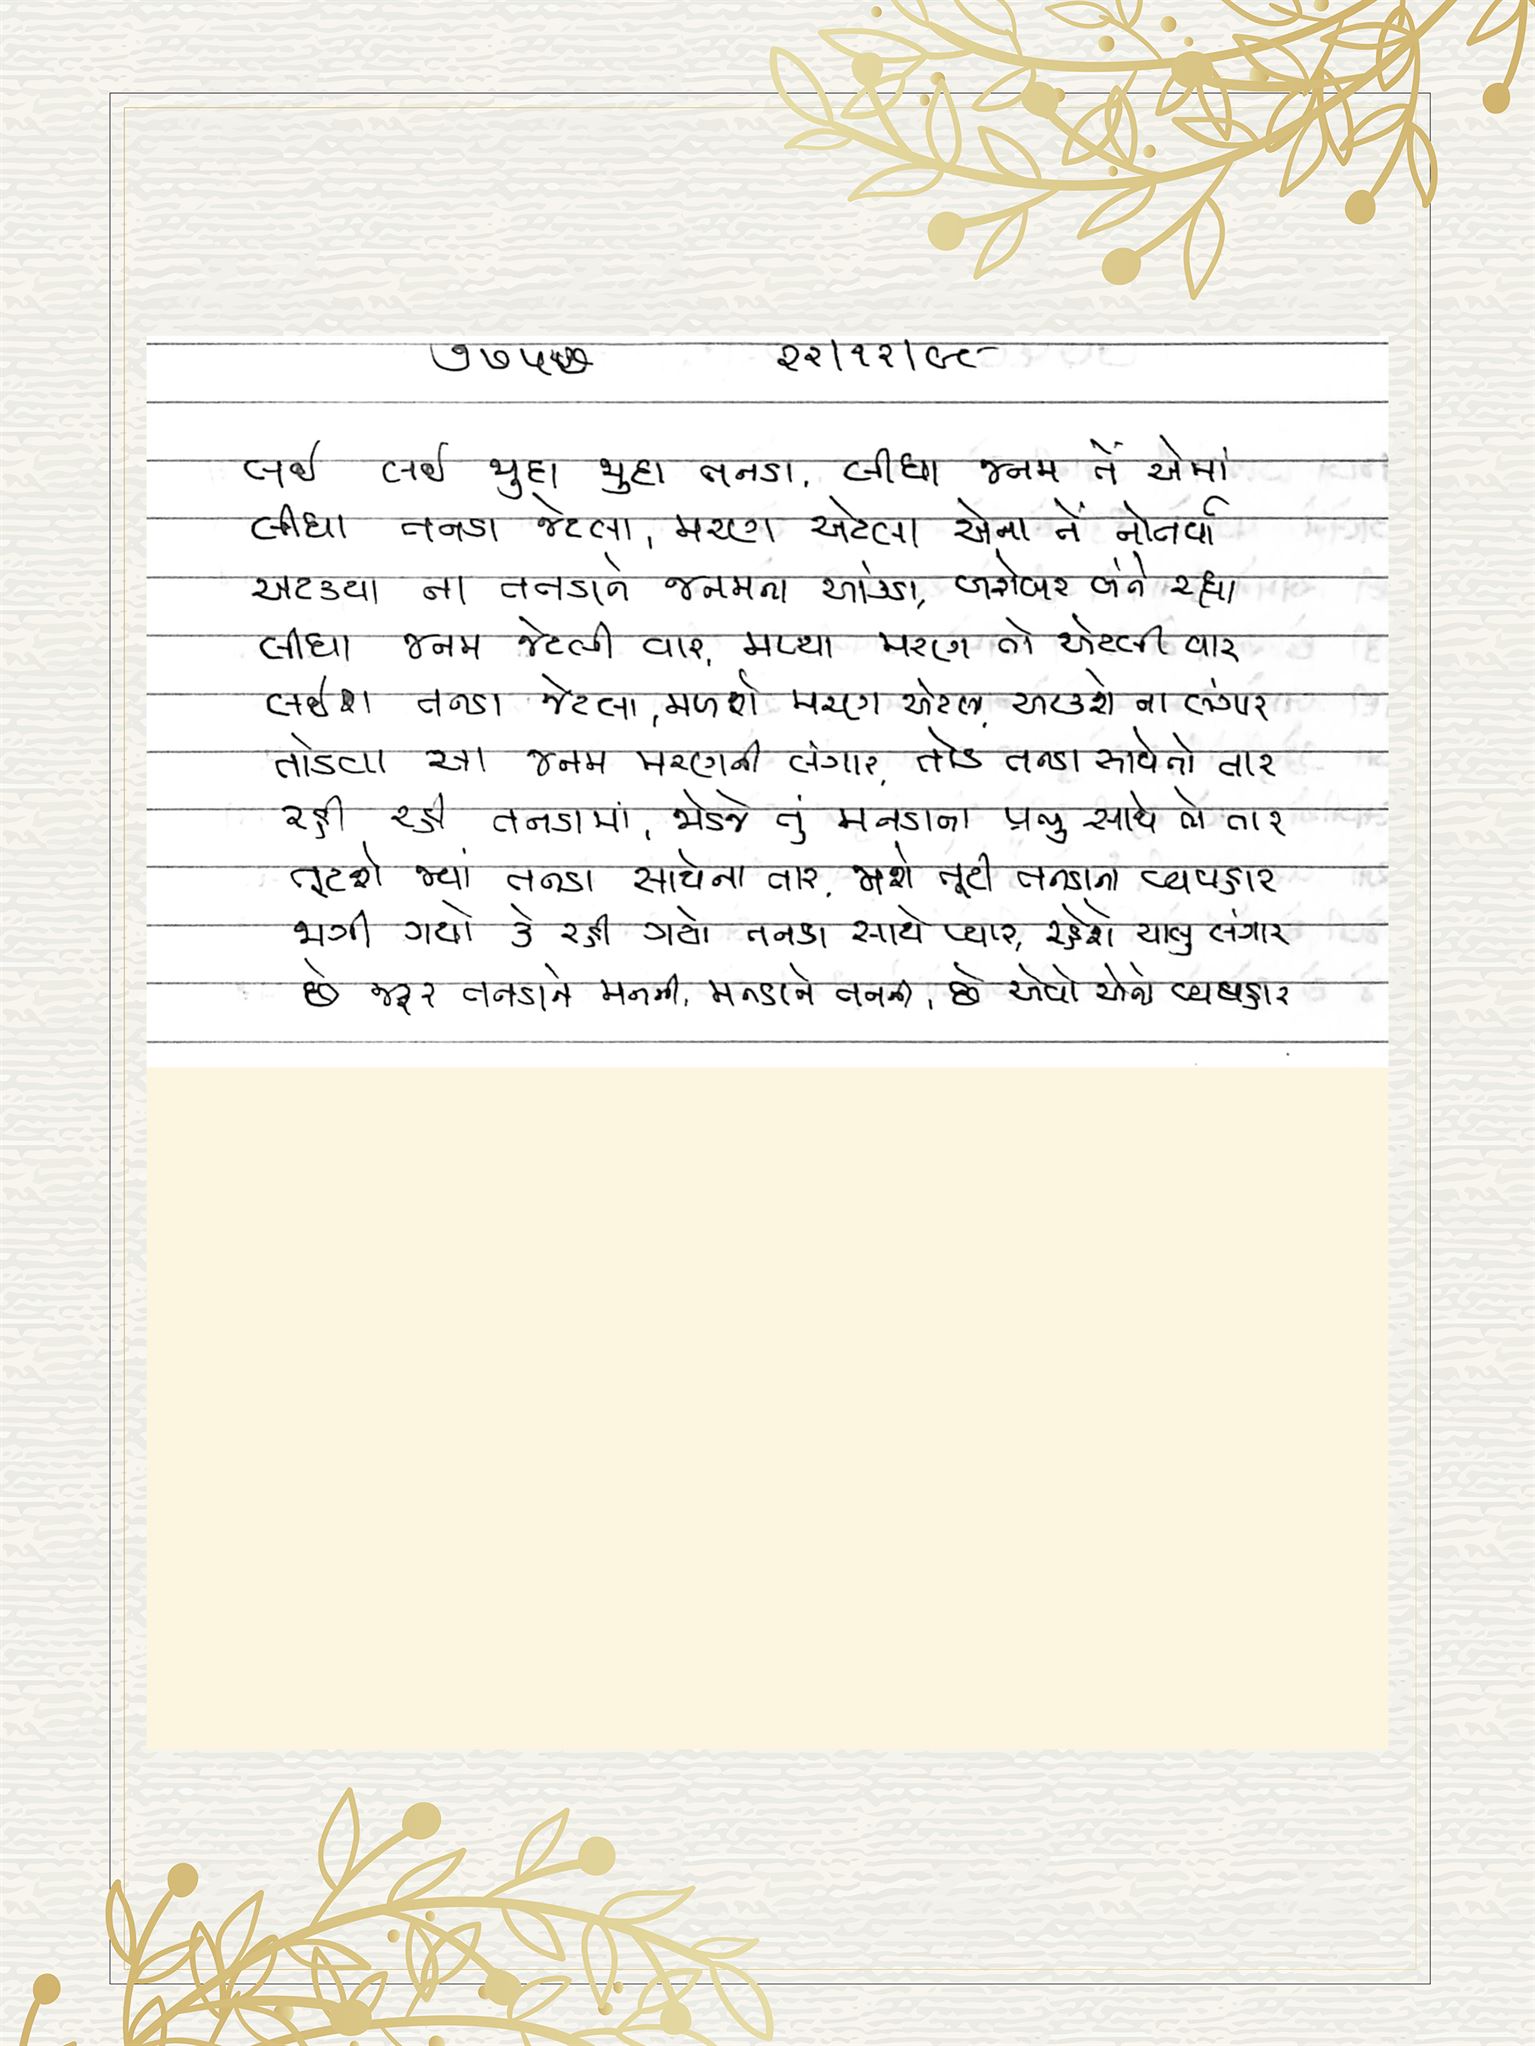 ૨૨/૧૨/૯૮
લઈ લઈ જુદા જુદા તનડા, લીધા જનમ તેં એમાં
લીધા તનડા જેટલા, મરણ એટલા એના તેં નોતર્યા
અટક્યા ના તનડાને જનમના આંકડા, બરોબર બંને રહ્યા
લીધા જનમ જેટલી વાર, મળ્યા મરણ તો એટલી વાર
લઈશ તનડા જેટલા, મળશે મરણ એટલા, અટકશે ના લંગાર
તોડવા આ જનમ મરણની લંગાર, તોડ તનડા સાથેનો તાર
રહી રહી તનડામાં, જોડજે તું મનડાના પ્રભુ સાથે તો તાર
તૂટશે જ્યાં તનડા સાથેના તાર, જાશે તૂટી તનડાના વ્યવહાર
જાગી ગયો કે રહી ગયો તનડા સાથે પ્યાર, રહેશે ચાલુ લંગાર
છે જરૂર તનડાને મનની, મનડાને તનની, છે એવો એનો વ્યવહાર